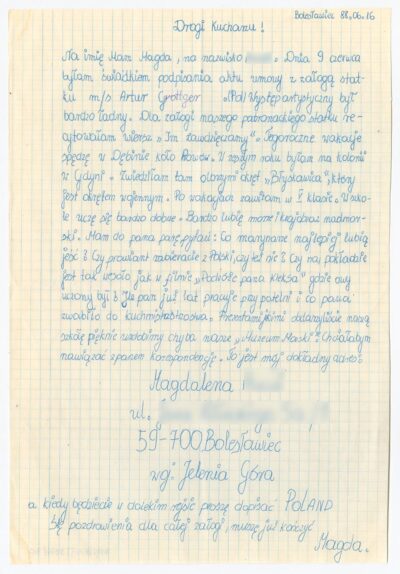 Bolesławiec 88.06.16
Drogi Kucharzu!
Na imię Mam Magda, na nazwisko . Dnia 9 czerwca
byłam świadkiem podpisania aktu umowy z załogą stat-
ku m/s Artur Grottger. Występ artystyczny był
bardzo ładny. Dla załogi naszego patronackiego statku re-
cytowałam wiersz „Im zawdzięczamy”. Tegoroczne wakacje
spędzę w Dębinie koło Rowów. W zeszłym roku byłam na kolonii
w Gdyni. Zwiedziłam tam olbrzymi okręt „Błyskawica”, który
jest okrętem wojennym. Po wakacjach zawitam w V klasie. W szko-
le uczę się bardzo dobrze. Bardzo lubię morze i krajobraz nadmor-
ski. Mam do pana parę pytań: Co marynarze najlepiej lubią
jeść? Czy prowiant zabieracie z Polski, czy też nie? Czy na pokładzie
jest tak wesoło jak w filmie „Podróże pana Kleksa” gdzie
był? Ile pan już lat pracuje przy patelni i co pana
zwabiło do kuchmistrzostwa. Prezentami jakimi obdarzyliście naszą
szkołę pięknie ozdobimy chyba nasze „Muzeum Morski”. Chciałabym
nawiązać z panem korespondencję. To jest mój dokładny adres:
Magdalena
ul.
59-700 Bolesławiec
woj. Jelenia Góra
a kiedy będziecie w dalekim rejsie proszę dopisać POLAND
Ślę pozdrowienia dla całej załogi, muszę już kończyć
Magda.